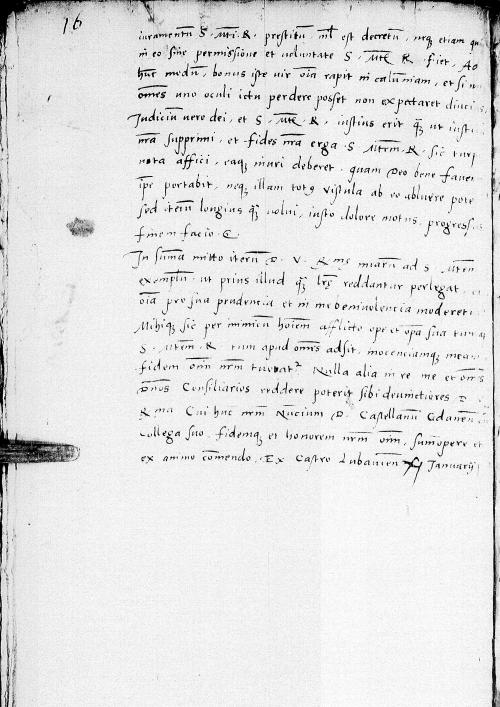 16
iuramentū S. Mti. R. prestitū, nl̄ est decretū, neq etiam qu
in eo sine permissione et voluntate S. Mtis R. fiet, Ad
hūc modū, bonus iste vir oīa rapit in calūniam, et si n
omēs uno oculi ictu perdere posset non expectaret diuci
Judiciū vero dei, et S. Mtis. R. iustius erit q̄ ut iusti
nr̄a supprimi, et fides nr̄a erga S. Mtem. R. sic turp
nota affici, eaq inuri deberet. quam Deo bene fauen
ipe portabit, neq illam tota vistula ab eo abluere pote
sed iterū longius q̄ volui, iusto dolore motus, progressus
finem facio.
In sum̄a mitto iterū D. V. R me, mearū ad S. Mtem
exemplū ut prius illud q̄ lr̄e reddantur perlegat
oīa pro sua prudencia et in me beniuolencia moderetu
Mihiq sic per inimicū hoīem afflicto ope et opa sua
S. Mtem. R. tum apud omēs adsit, innocenciamq mea
fidem om̄ nr̄m tueatr. Nulla alia in re me et omēs
Dn̄os Consiliarios reddere poterit sibi deuinctiores D.
R ma Cui huc nr̄m Nuncium D. Castellanū Gdanēn
Collega suo, fidemq et honorem nr̄m om̄, sum̄opere et
ex animo com̄endo. Ex Castro Lubauien XI Januarij